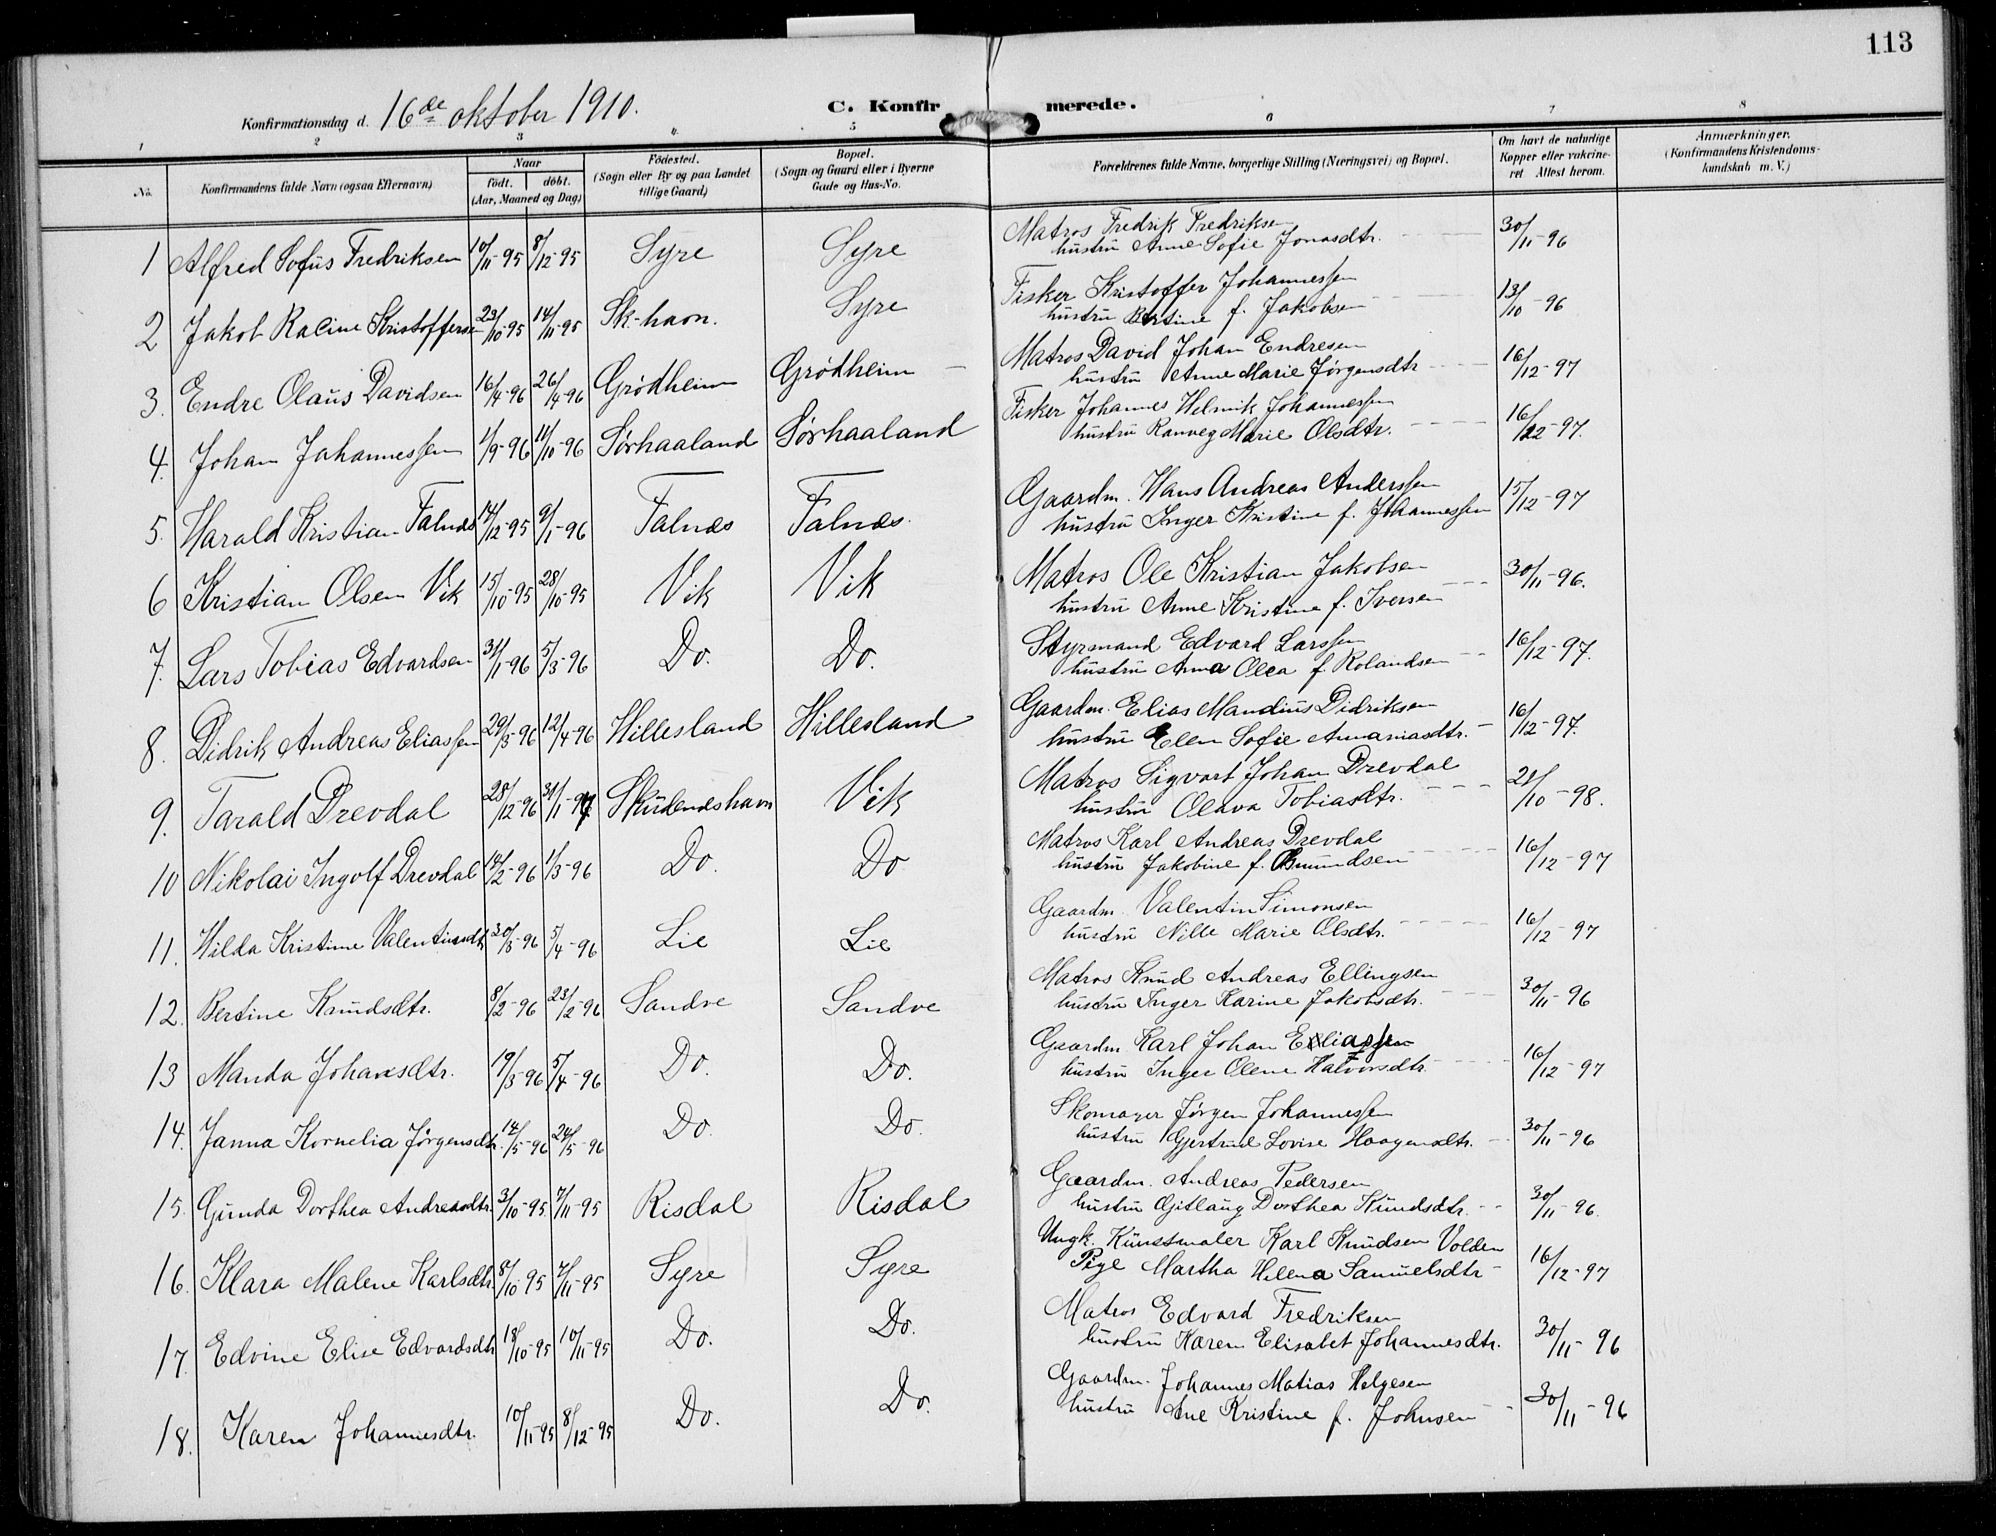 113
Konfirmationsdag d. 16de oktober 1910.
C. Konfirmerede.
1 2 3 4 5 6 7 8
No.
Konfirmandens fulde Navn (ogsaa Efternavn)
Naar
födt. döbt.
(Aar, Maaned og Dag)
Födested.
(Sogn eller By og paa Landet
tillige Gaard)
Bopæl.
(Sogn og Gaard eller i Byerne
Gade og Hus-No.
Forældrenes fulde Navne, borgerlige Stilling (Næringsvei) og Bopæl.
Om havt de naturlige
Kopper eller vakcine-
ret Attest herom.
Anmærkninger.
(Konfirmandens Kristendoms-
kundskab m. V.)
1 Alfred Sofus Fredriksen 10/11-95 8/12-95 Syre Syre Matros Fredrik Fredriksen
hustru Anne Sofie Jonasdtr. 30/11-96
2 Jakob Racine Kristoffersen 23/10-95 14/11-95 Sk-havn. Syre Fisker Kristoffer Johannessen
hustru Bertine f. Jakobsen 13/10-96
3. Endre Olaus Davidsen 16/4-96 26/4-96 Grødheim Grødheim Matros David Johan Endresen
hustru Anne Marie Jørgensdtr 16/12-97
4. Johan Johannessen 1/9-96 11/10-96 Sørhaaland Sørhaaland Fisker Johannes Helmik Johannessen
hustru Ranveg Marie Olsdtr. 16/12-97.
5. Harald Kristian Falnæs 14/12-95 9/1-96 Falnæs Falnæs. Gaardm. Hans Andreas Anderssen
hustru Inger Kristine f. Johannessen 15/12-97
6 Kristian Olsen Vik 15/10-95 28/10-95 Vik Vik Matros Ole Kristian Jakobsen
hustru Anne Kristine f. Iversen 30/11-96.
7. Lars Tobias Edvardsen 31/1-96 5/3-96 Do. Do. Styrmand Edvard Larssen
hustru Anna Olea f Rolandsen 16/12-97.
8. Didrik Andreas Eliassen 29/3-96 12/4-96 Hillesland Hillesland Gaardm. Elias Mandius Didriksen
hustru Elen Sofie Annaniasdtr. 16/12-97.
9. Tarald Drevdal 28/12-96 31/1-97 Skudeneshavn Vik Matros Sigvart Johan Drevdal
hustru Olava Tobiasdtr. 21/10-98.
10 Nikolai Ingolf Drevdal 14/2-96 1/3-96 Do. Do Matros Karl Andreas Drevdal
hustru Jakobine f. Omundsen 16/12-97
11. Hilda Kristine Valentinsdtr 20/3-96 5/4-96 Lie Lie Gaardm. Valentin Simonsen
hustru Nille Marie Olsdtr. 16/12-97
12. Bertine Knudsdtr. 8/2-96 23/2-96 Sandve Sandve Matros Knud Andreas Ellingsen
hustru Inger Karine Jakobsdtr. 30/11-96
13 Manda Johansdtr. 19/3-96 5/4-96 Do. Do. Gaardm Karl Johan Eliassen
hustru Inger Olene Halvorsdtr 16/12-97
14. Janna Kornelia Jørgensdtr. 14/5-96 24/5-96 Do. Do. Skomager Jørgen Johannessen
hustru Gjertrud Lovise Haagensdtr. 30/11-96
15. Gunda Dorthea Andreasdtr. 3/10-95 7/11-95 Risdal Risdal Gaardm. Andreas Pedersen
hustru Gitlaug Dorthea Knudsdtr. 30/11-96.
16. Klara Malene Karlsdtr. 8/10-95 7/11-95 Syre Syre Ungk. Kunstmaler Karl Knudsen Volden
Pige Martha Helena Samuelsdtr 16/12-97
17. Edvine Elise Edvardsdtr 18/10-95 10/11-95 Do. Do. Matros Edvard Fredriksen
hustru Karen Elisabet Johannesdtr. 30/11-96
18. Karen Johannesdtr. 10/11-95 8/12-95 Do. Do. Gaardm. Johannes Matias Helgesen
hustru Ane Kristine f. Johnsen 30/11-96